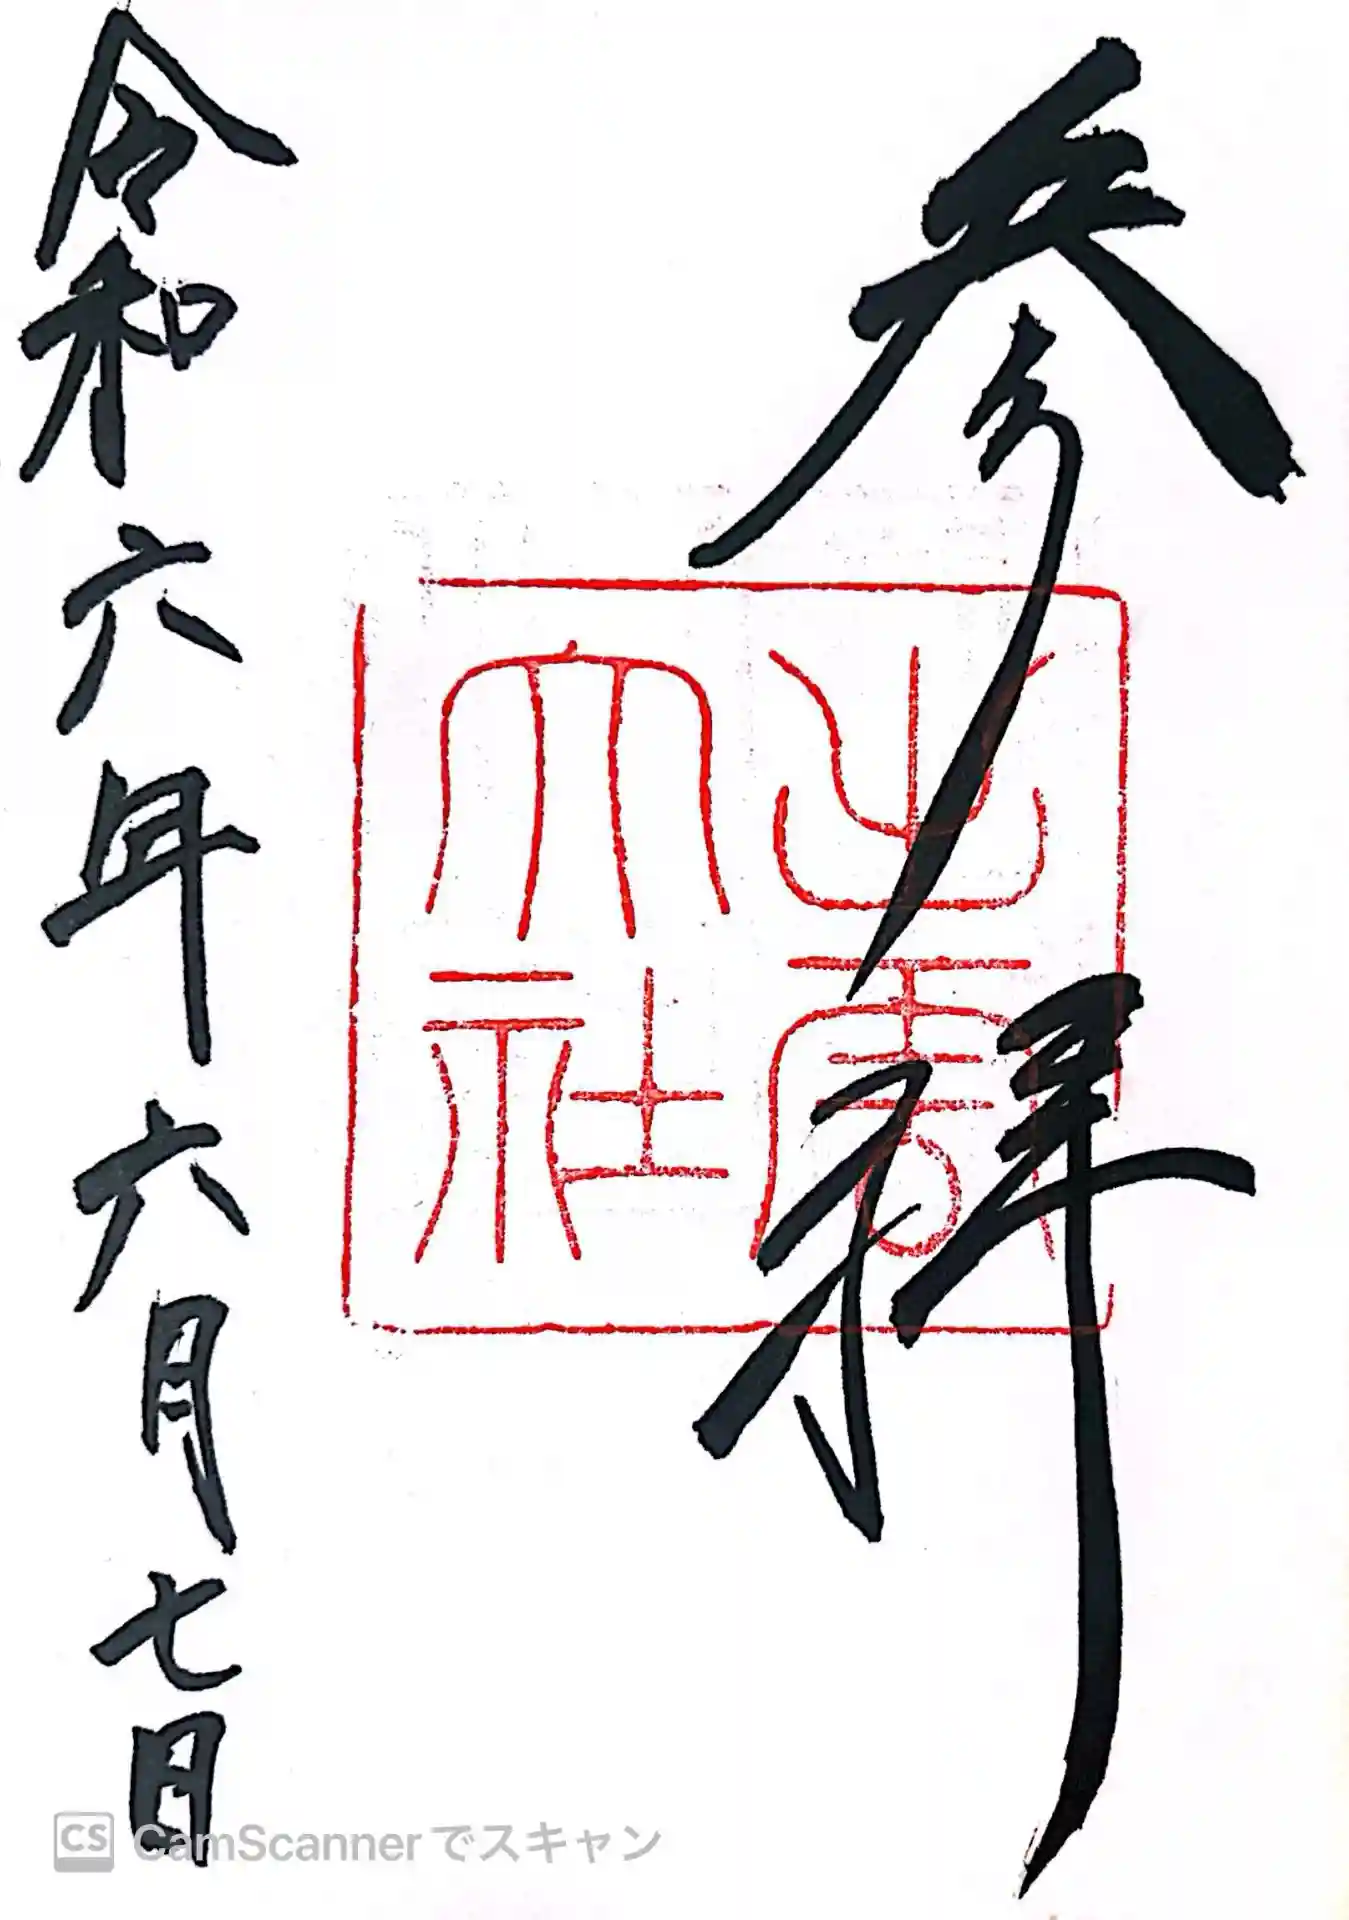 参拝
出雲
大社
令和六年六月七日
CS CamScannerでスキャン